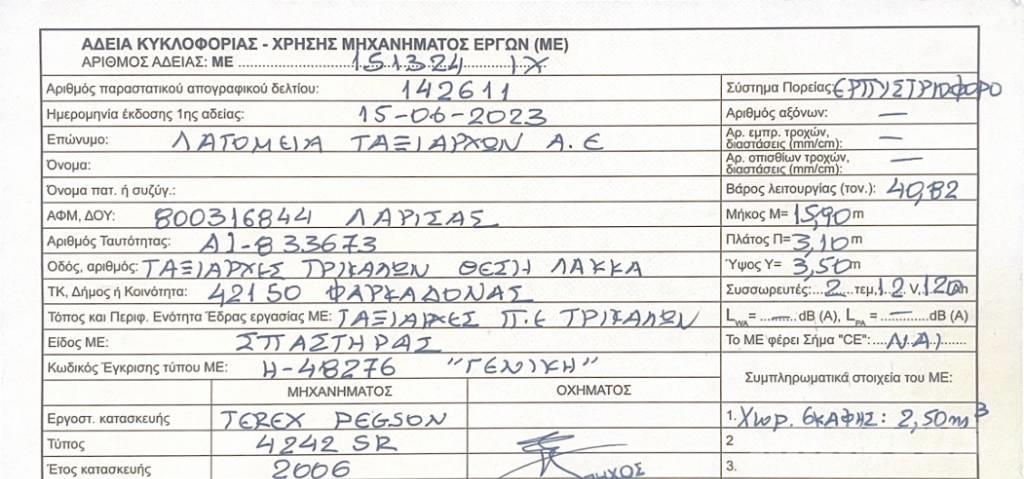 ΑΔΕΙΑ ΚΥΚΛΟΦΟΡΙΑΣ - ΧΡΗΣΗΣ ΜΗΧΑΝΗΜΑΤΟΣ ΕΡΓΩΝ (ΜΕ)
ΑΡΙΘΜΟΣ ΑΔΕΙΑΣ: ΜΕ 151324 ΙΧ
Αριθμός παραστατικού απογραφικού δελτίου: 142611
Σύστημα Πορείας: ΕΡΠΥΣΤΡΙΟΦΟΡΟ
Ημερομηνία έκδοσης 1ης αδείας: 15-06-2023
Αριθμός αξόνων: —
Επώνυμο: ΛΑΤΟΜΕΙΑ ΤΑΞΙΑΡΧΩΝ Α.Ε
Αρ. εμπρ. τροχών, διαστάσεις (mm/cm): —
Όνομα:
Αρ. οπισθίων τροχών, διαστάσεις (mm/cm): —
Όνομα πατ. ή συζύγ.:
Βάρος λειτουργίας (τον.): 40,82
ΑΦΜ, ΔΟΥ: 800316844 ΛΑΡΙΣΑΣ
Μήκος Μ= 15,90 m
Αριθμός Ταυτότητας: ΑΙ-833673
Πλάτος Π= 3,10 m
Οδός, αριθμός: ΤΑΞΙΑΡΧΕΣ ΤΡΙΚΑΛΩΝ ΘΕΣΗ ΛΑΚΚΑ
Ύψος Υ= 3,50 m
ΤΚ, Δήμος ή Κοινότητα: 42150 ΦΑΡΚΑΔΟΝΑΣ
Συσσωρευτές: 2 τεμ, 12 V, 120 Ah
Τόπος και Περιφ. Ενότητα Έδρας εργασίας ΜΕ: ΤΑΞΙΑΡΧΕΣ Π.Ε ΤΡΙΚΑΛΩΝ
LWA = — dB (A), LPA = — dB (A)
Είδος ΜΕ: ΣΠΑΣΤΗΡΑΣ
Το ΜΕ φέρει Σήμα "CE": ΝΑΙ
Κωδικός Έγκρισης τύπου ΜΕ: Η-48276 "ΓΕΝΙΚΗ"
Συμπληρωματικά στοιχεία του ΜΕ:
ΜΗΧΑΝΗΜΑΤΟΣ ΟΧΗΜΑΤΟΣ
Εργοστ. κατασκευής TEREX PEGSON
1. Χωρ. ΣΚΑΦΗΣ: 2,50m³
Τύπος 4242 SR
2
Έτος κατασκευής 2006
3.